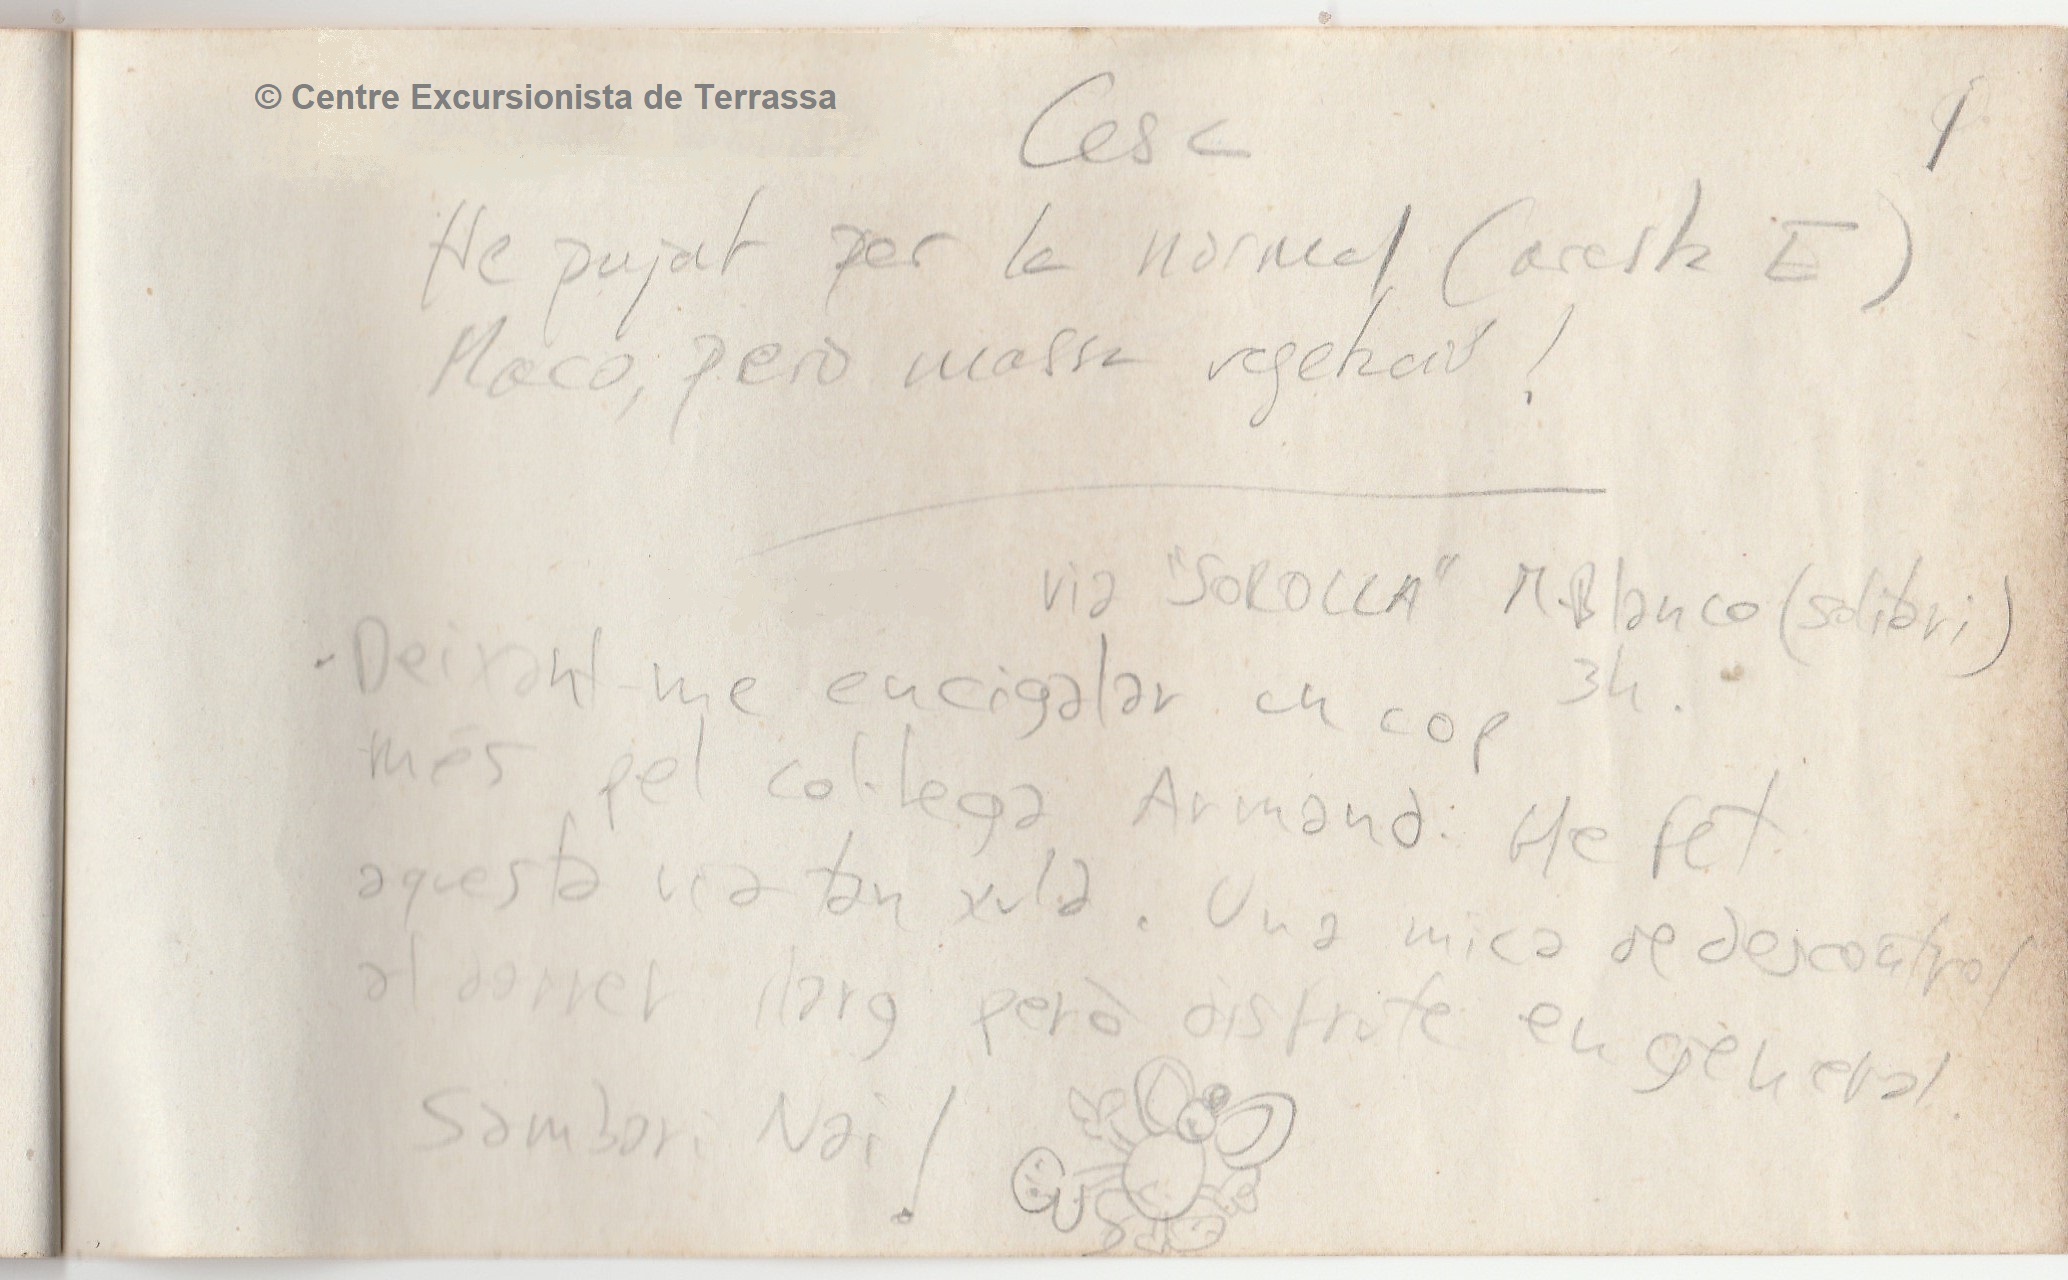 © Centre Excursionista de Terrassa
Cesc
He pujat per la normal (aresta E)
Maco, però massa vegetació!
via "SOROLLA" M.Blanco (solitari)
3h.
- Deixant-me encigalar un cop
més pel col·lega Armand: He fet
aquesta via tan xula. Una mica de descontrol
al darrer llarg però disfrute en general
Sambori Nai!